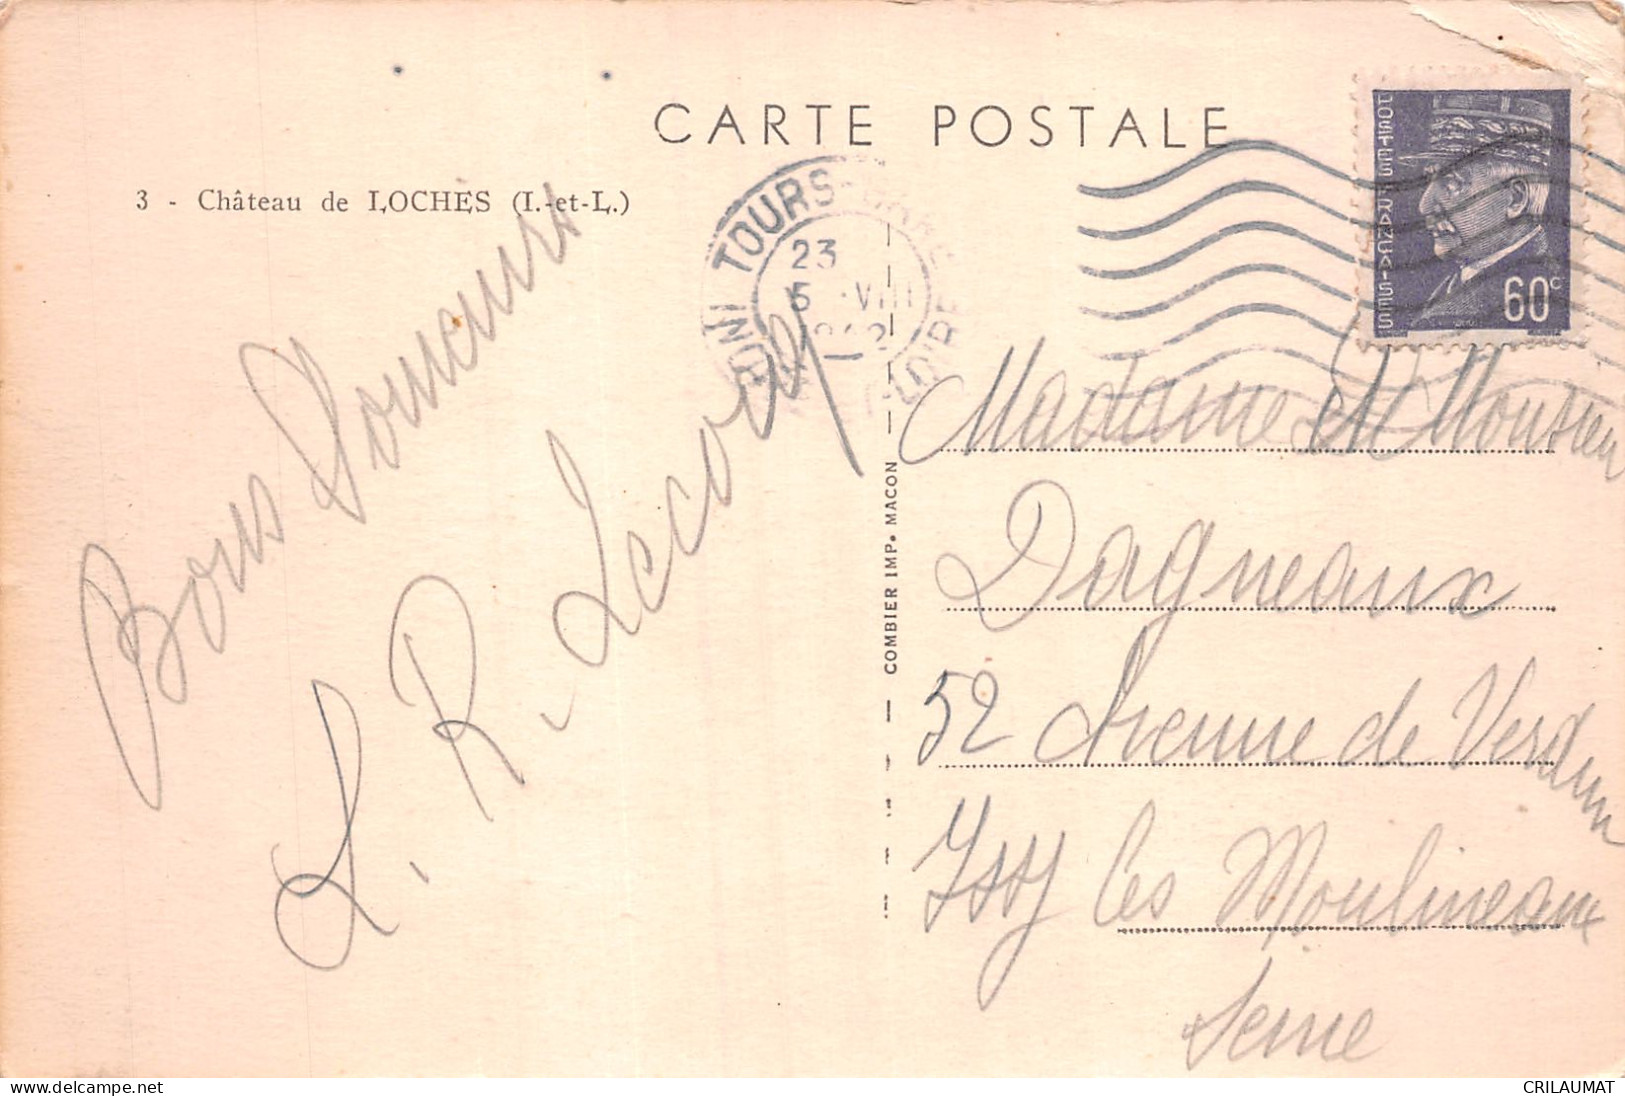 CARTE POSTALE
3 - Château de LOCHES (I.-et-L.)
TOURS-GARE
23
5 -VIII
1942
POSTES FRANÇAISES
60c
Bons Souvenirs
L. R. Lecoq
COMBIER IMP. MACON
Madame et Monsieur
Dagneaux
52 Avenue de Verdun
Issy les Moulineaux
Seine
www.delcampe.net
CRILAUMAT